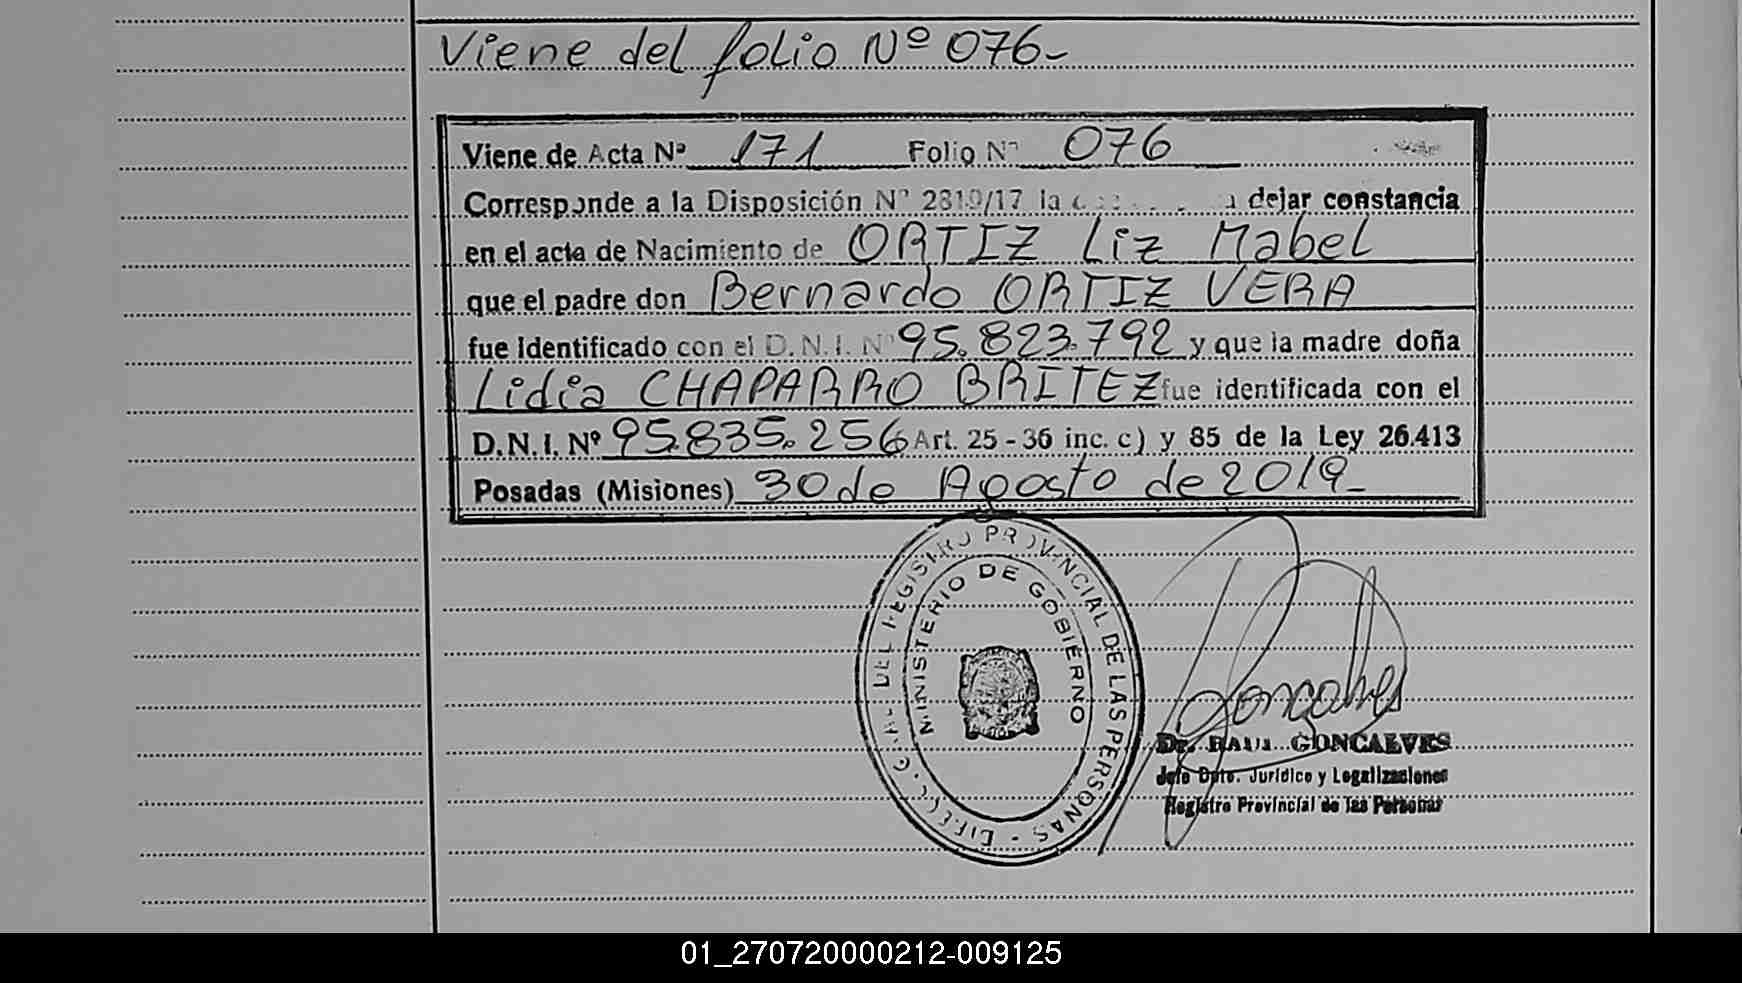 Viene del folio Nº 076-
Viene de Acta Nº 171 Folio Nº 076
Corresponde a la Disposición Nº 2810/17 la dejar constancia
en el acta de Nacimiento de ORTIZ Liz Mabel
que el padre don Bernardo ORTIZ VERA
fue Identificado con el D.N.I. Nº 95.823.792 y que la madre doña
Lidia CHAPARRO BRITEZ fue identificada con el
D.N.I. Nº 95.835.256 Art. 25 - 36 inc. c) y 85 de la Ley 26.413
Posadas (Misiones) 30 de Agosto de 2019-
DEL REGISTRO PROVINCIAL DE LAS PERSONAS -
MINISTERIO DE GOBIERNO
Goncalves
Dr. RAUL GONCALVES
Jefe Dpto. Jurídico y Legalizaciones
Registro Provincial de las Personas
01_270720000212-009125